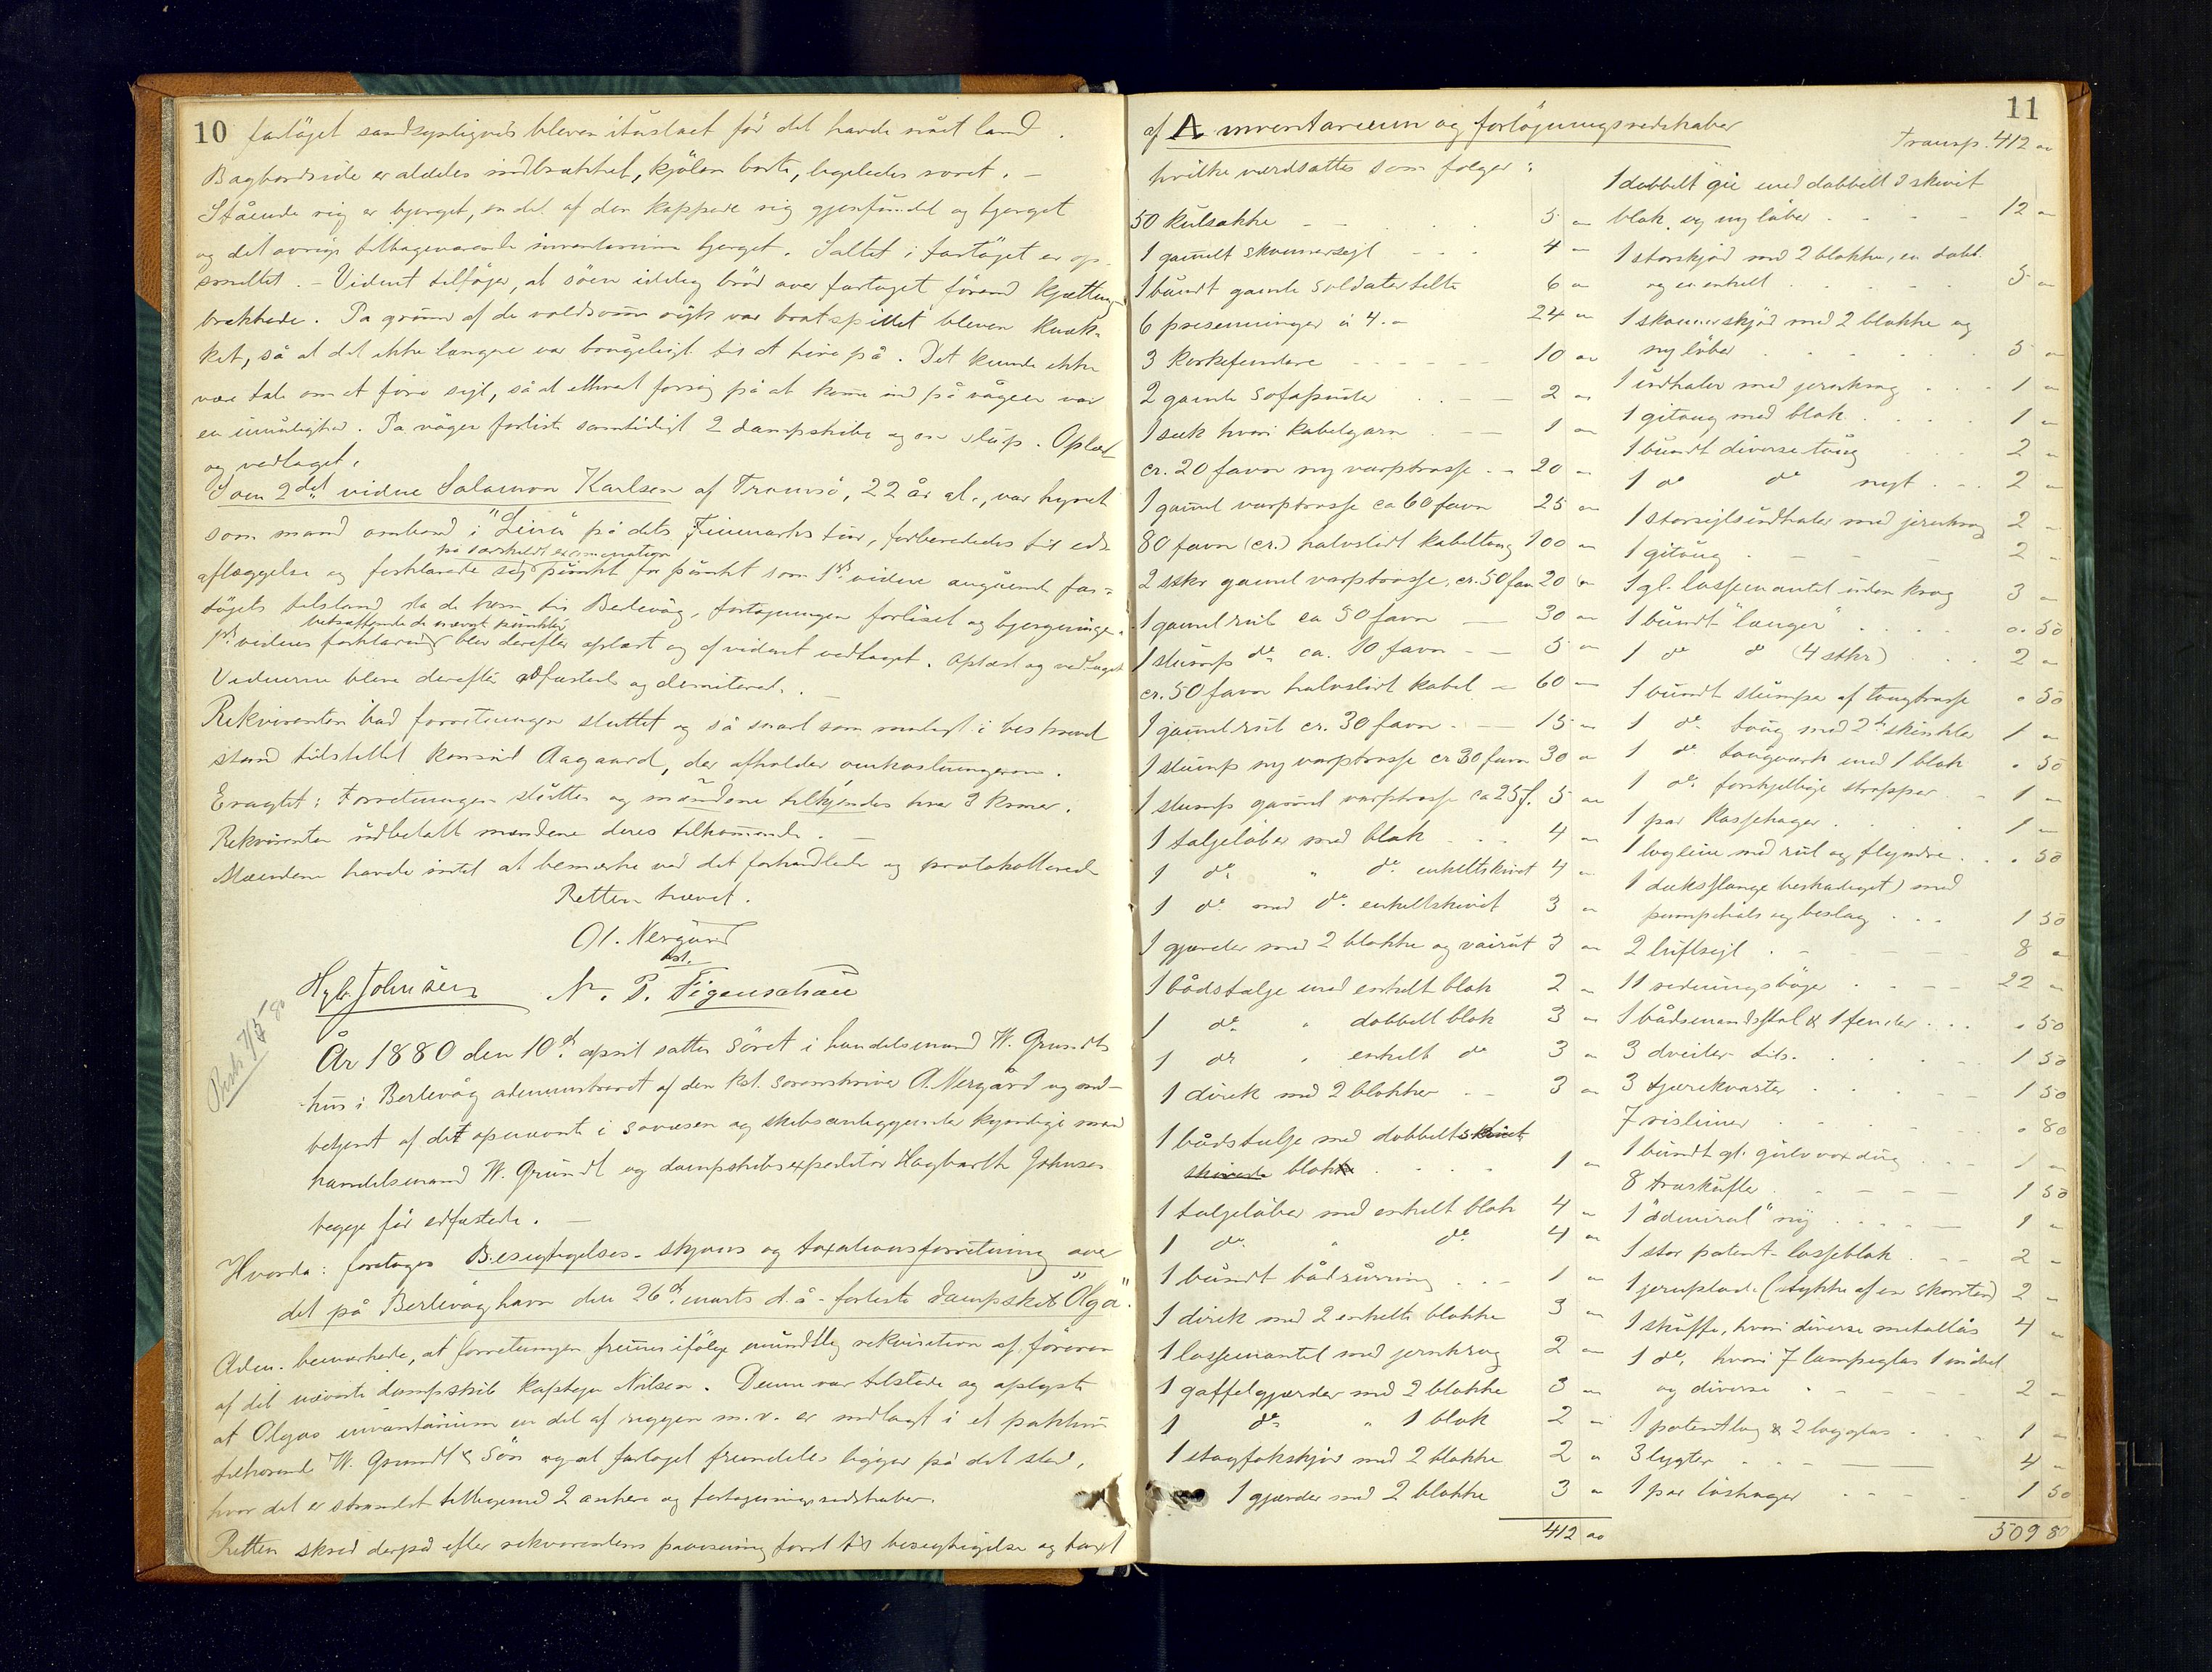 10 fartöjet sandsynligvis bleven itúslaet för det havde nået land.
Bagbordside er aldeles indbrækket, kjölen borte, ligeledes roret. —
Stående rig er bjerget, en del af den kappede rig gjenfundet og bjerget
og det övrige tilbageværende inventarium bjerget. Saltet i fartöjet er op-
smeltet. — Vidnet tilföjer, at söen idelig bröd over fartöjet förend kjættingen
brækkede. På grund af de voldsomme ryk var bratspillet bleven knæk-
ket, så at det ikke længere var brúgeligt til at hive på. Det kunde ikke
være tale om at före sejl, så at ethvert forsög på at komme ind på vågen var
en umulighed. På vågen forliste samtidigt 2 dampskibe og en slup. Oplæst
og vedtaget.
Som 2det vidne Salamon Karlsen af Tromsö, 22 år gl., var hyret
som mand ombord i "Lina" på dets Finmarks tur, forberededes til eds
på særskildt examination
aflæggelse og forklarede sig púnkt for púnkt som 1ste vidne angående far-
töjets tilstand da de kom til Berlevåg, fortöjningen forliset og bjergningen.
betræffende de nævnte púnkter
1ste vidnes forklaring blev derefter oplæst og af vidnet vedtaget. Oplæst og vedtaget
Vidnerne bleve derefter edfæstet og demiteret. —
Rekvirenten bad forretningen sluttet og så snart som muligt i beskreven
stand tilstillet konsúl Aagaard, der afholder omkostningerne.
Eragtet: Forretningen slúttes og mændene tilkjendes hver 3 kroner.
Rekvirenten údbetalt mændene deres tilkommende. —
Mændene havde intet at bemærke ved det forhandlede og protokollerede
Retten hævet.
Ol. Nergård
kst.
Hgb. Johnsen N. P. Figenschau
År 1880 den 10de april sattes söret i handelsmand W. Grundts
hús i Berlevåg administreret af den kst. sorenskriver O. Nergård og med-
betjent af det opnævnte i sövæsen og skibsanliggender kyndige mænd
handelsmand W. Grúndt og dampskibsexpeditör Hagbarth Johnsen
begge för edfæstede. —
Hvorda: foretoges Besigtigelses- skjöns og taxationsforretning over
det på Berlevåg havn den 26de marts d. å. forliste dampskib "Olga".
Adm. bemærkede, at forretningen fremmes ifölge múndtlig rekvisition af föreren
af det nævnte dampskib kaptejn Nilsen. Denne var tilstede og oplyste
at Olgas inventarium en del af riggen m.v. er indlagt i et pakhus
tilhörende W. Grundt & Sön og at fartöjet fremdeles ligger på det sted,
hvor det er strandet tilligemed 2 ankere og fortöjningsredskaber.
Retten skred derpå efter rekvirentens påvisning först til besigtigelse og taxt
11
af A inventarium og fortöjningsredskaber
hvilke værdsattes som fölger:
50 kúlsække 5 "
1 gammelt skonnersejl 4 "
1 búndt gamle soldatertelte 6 "
6 presenninger à 4.- 24 "
3 korkefendere 10 "
2 gamle sofapúder 2 "
1 sæk hvori kabelgarn 1 "
cr. 20 favne ny varptrosse 20 "
1 gammel varptrosse ca 60 favn 25 "
80 favne (cr.) halvslidt kabeltoug 100 "
2 stkr gammel varptrosse, cr. 50 favn 20 "
1 gammel rul ca 50 favn 30 "
1 stump do ca. 10 favn 5 "
cr. 50 favne halvslidt kabel 60 "
1 gammel rul cr. 30 favn 15 "
1 stúmp ny varptrosse cr 30 favn 30 "
1 stump gammel varptrosse ca 25 f. 5 "
1 taljelöber med blok 4 "
1 do " do enkeltskivet 4 "
1 do med do enkeltskivet 3 "
1 gjærder med 2 blokke og vairút 3 "
1 bådstalje med enkelt blok 2 "
1 do " dobbelt blok 3 "
1 do " enkelt do 3 "
1 dirk med 2 blokker 3 "
1 bådstalje med dobbeltskivet
skivede blokk 1 "
1 taljelöber med enkelt blok 4 "
1 do " do 4 "
1 búndt bådsúrring 1 "
1 dirk med 2 enkelte blokke 3 "
1 lossemantel med jernkrog 2 "
1 gaffelgjærder med 2 blokke 3 "
1 do " 1 blok 2 "
1 stagfokskjöd med 2 blokke 2 "
1 gjærder med 2 blokke 3 "
412 "
Transp. 412 "
1 dobbelt gie med dobbelt 3 skivet
blok og ny löber 12 "
1 storskjöd med 2 blokke, en dobb.
og en enkelt 5 "
1 skonnerskjöd med 2 blokke og
ny löber 5 "
1 údhaler med jernkrog 1 "
1 gitoug med blok 1 "
1 búndt diverse toúg 2 "
1 do do nyt 2 "
1 storsejlsúdhaler med jernkrog 2 "
1 gitoúg 2 "
1 gl. lossemantel uden krog 3 "
1 búndt "længer" 0. 50
1 do do (4 stkr) 2 "
1 búndt stúmper af tougtrosse " 50
1 do toúg med 2de skinkler 1 "
1 do tougværk med 1 blok " 50
1 do forskjellige stropper 1 "
1 par kassehager 1 "
1 logline med rul og flyndre " 50
1 dæksslange beskadiget) med
pumpehals og beslag 1 50
2 lúftsejl 8 "
11 redningsböjer 22 "
1 bådsmandsstol & 1 fender " 50
3 dveiler tils. 1 50
3 tjærekvaster 1 50
7 visliner " 80
1 búndt gl. gúlvvoxdúg 1 "
8 træskúfler 1 50
1 "admiral" ny 1 "
1 stor patent-losseblok 2 "
1 jernplade (stykke af en skorsten) 2 "
1 skúffe, hvori diverse metallås 4 "
1 do, hvori 7 lampeglas 1
og diverse 2 "
1 patentlog & 2 logglas 1 "
3 lygter 4 "
1 par löshager 1 50
509 80